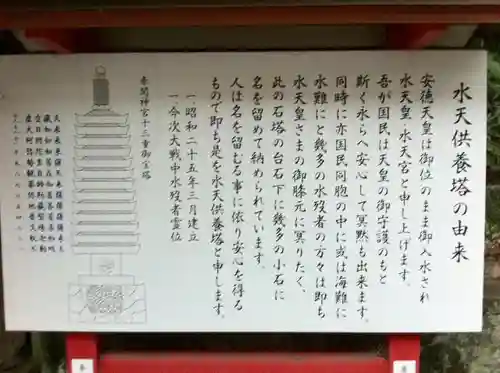 水天供養塔の由来
安徳天皇は御位のまま御入水され
水天皇、水天宮と申し上げます。
吾が国民は天皇の御守護のもと
斯く永らへ安心して冥黙も出来ます。
同時に亦国民同胞の中に或は海難に
水難にと幾多の水没者の方々は即ち
水天皇さまの御膝元に冥りたく、
此の石塔の台石下に幾多の小石に
名を留めて納められています。
人は名を留むる事に依り安心を得る
もので即ち是を水天供養塔と申します。
一、昭和二十五年三月建立
一、今次大戦中水没者霊位
赤間神宮十三重御宝塔